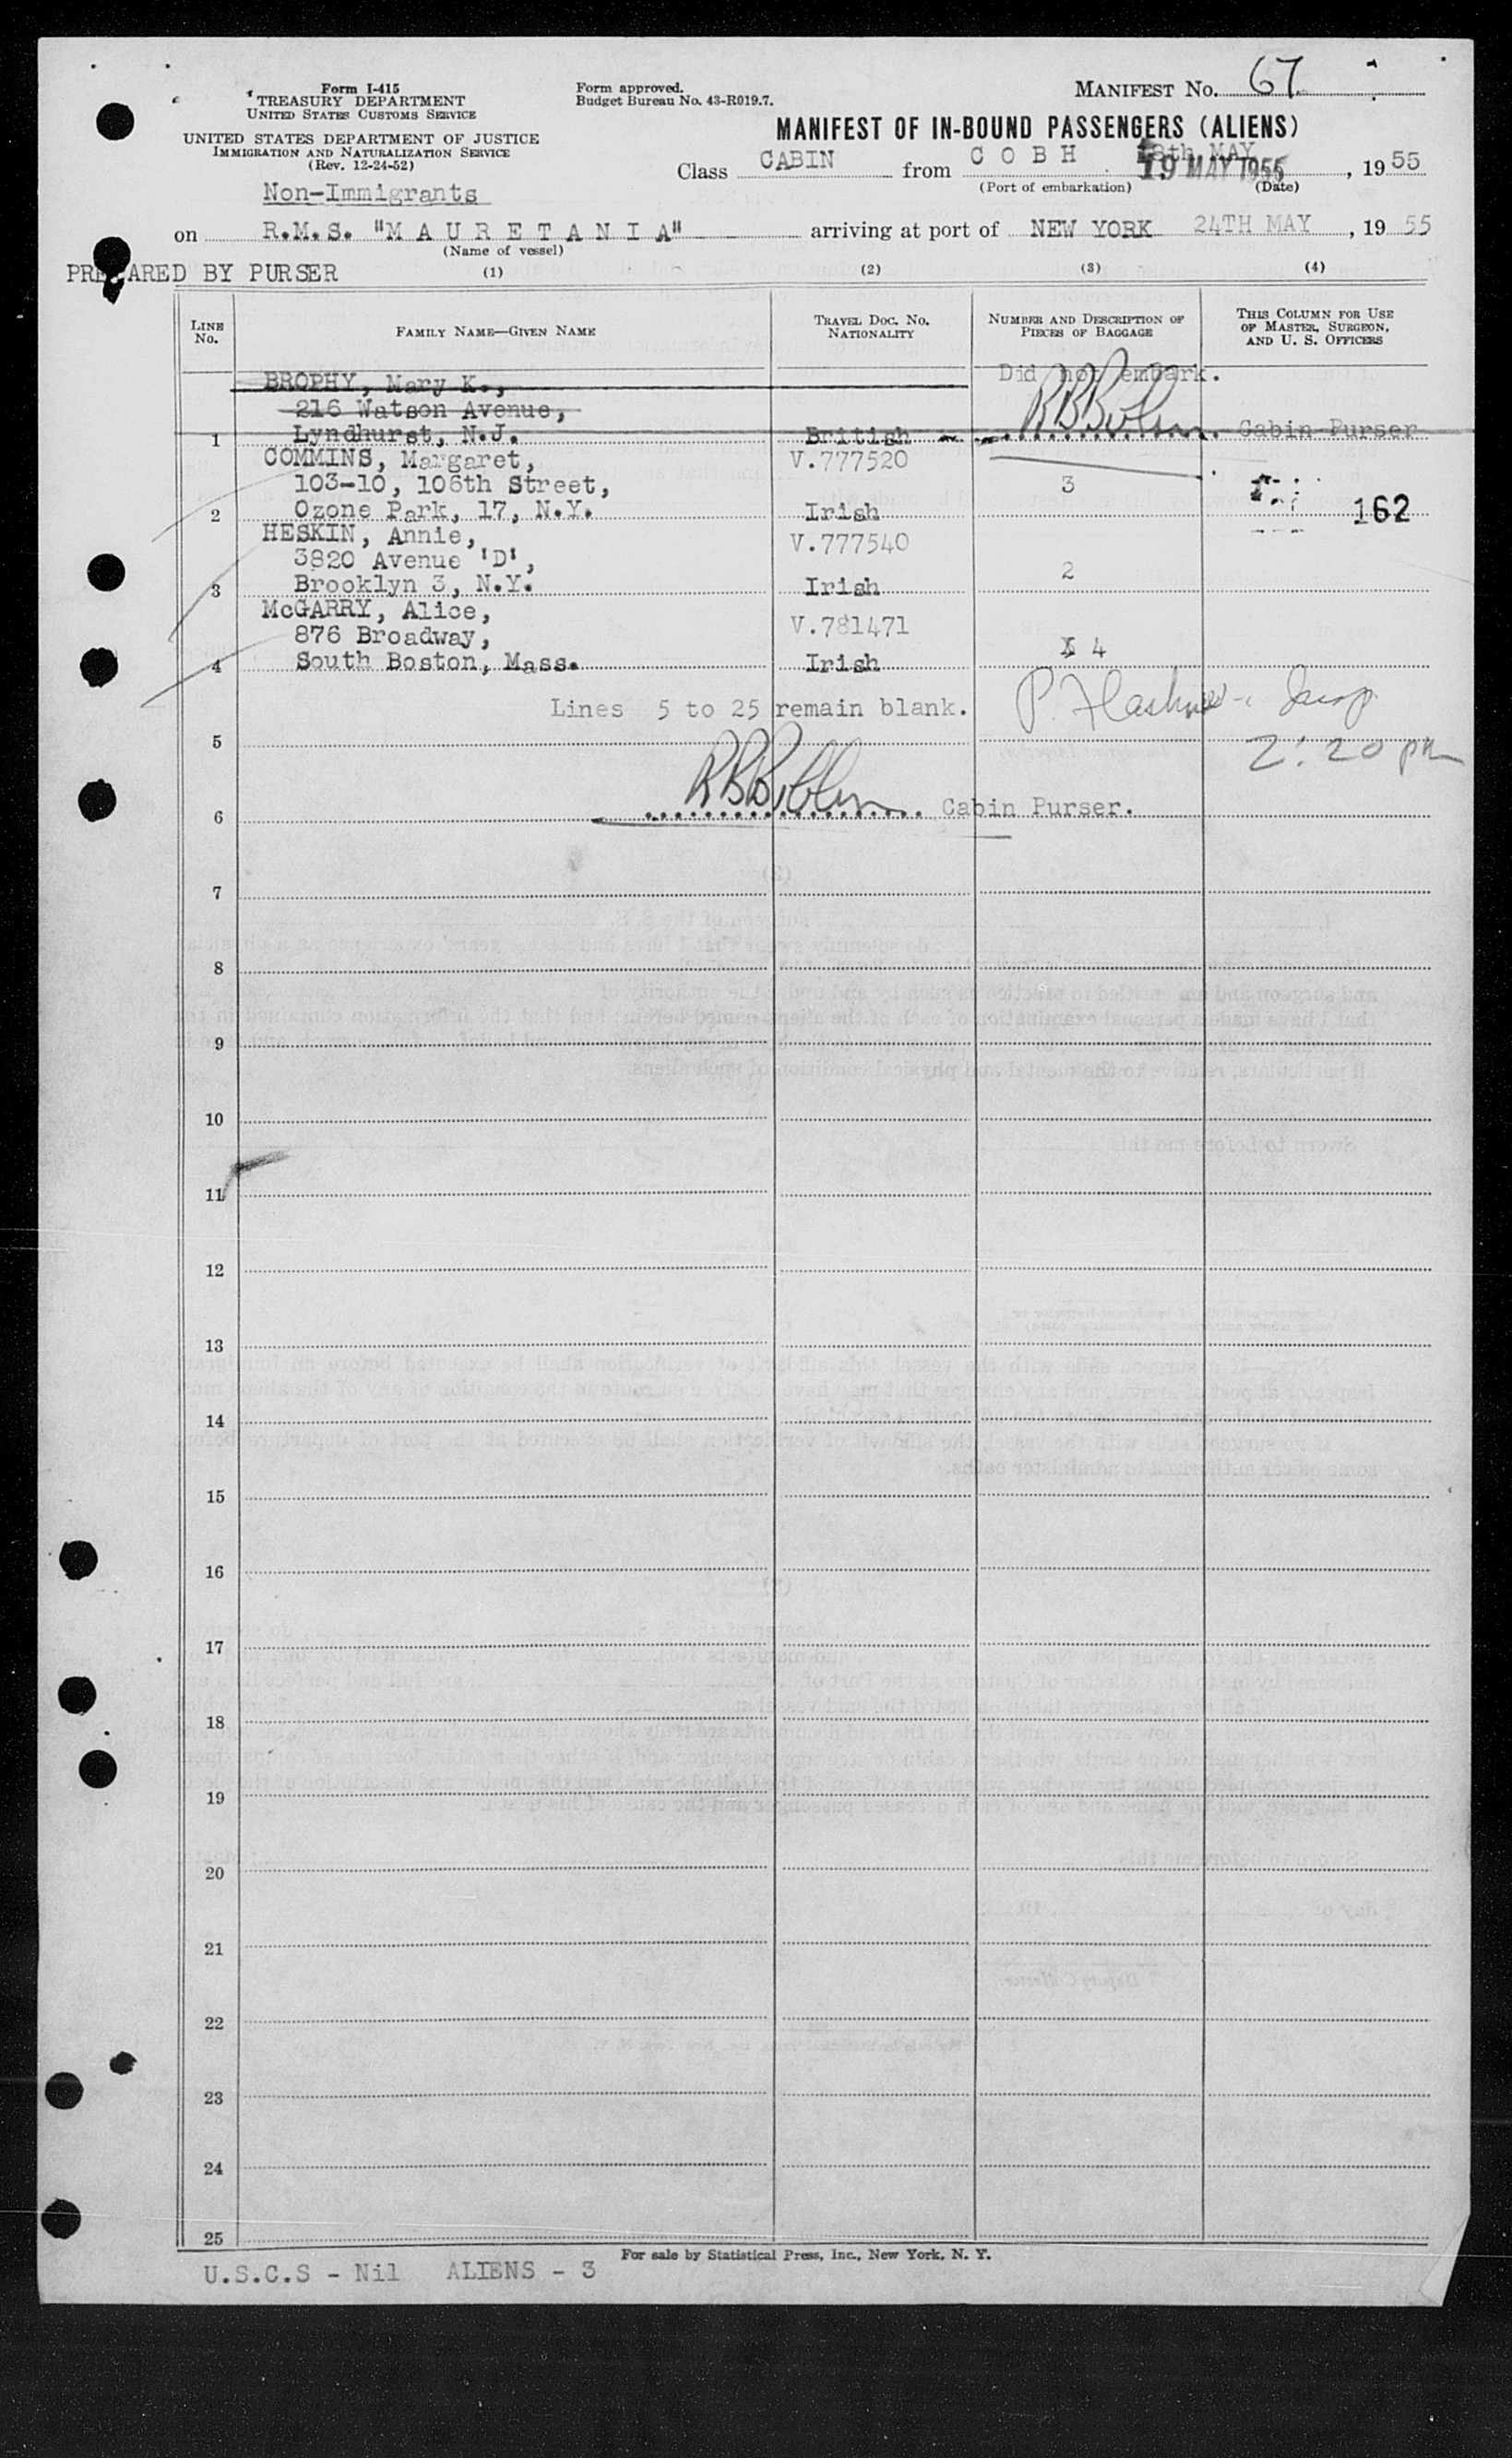 Form I-415
TREASURY DEPARTMENT
UNITED STATES CUSTOMS SERVICE
UNITED STATES DEPARTMENT OF JUSTICE
IMMIGRATION AND NATURALIZATION SERVICE
(Rev. 12-24-52)
Form approved.
Budget Bureau No. 43-R019.7.
MANIFEST No. 67
MANIFEST OF IN-BOUND PASSENGERS (ALIENS)
Class CABIN from COBH 18th MAY 19 MAY 1955, 19 55
(Port of embarkation) (Date)
Non-Immigrants
on R.M.S. "MAURETANIA" arriving at port of NEW YORK 24TH MAY, 19 55
(Name of vessel)
PREPARED BY PURSER (1) (2) (3) (4)
LINE No. FAMILY NAME—GIVEN NAME TRAVEL DOC. NO. NATIONALITY NUMBER AND DESCRIPTION OF PIECES OF BAGGAGE THIS COLUMN FOR USE OF MASTER, SURGEON, AND U. S. OFFICERS
BROPHY, Mary K., Did not embark.
216 Watson Avenue,
1 Lyndhurst, N.J. British Cabin Purser
COMMINS, Margaret, V.777520
103-10, 106th Street, 3
2 Ozone Park, 17, N.Y. Irish 162
HESKIN, Annie, V.777540
3820 Avenue 'D', 2
3 Brooklyn 3, N.Y. Irish
McGARRY, Alice, V.781471
876 Broadway, 4
4 South Boston, Mass. Irish
Lines 5 to 25 remain blank.
5 2:20 pm
6 Cabin Purser.
7
8
9
10
11
12
13
14
15
16
17
18
19
20
21
22
23
24
25
For sale by Statistical Press, Inc., New York, N. Y.
U.S.C.S - Nil ALIENS - 3